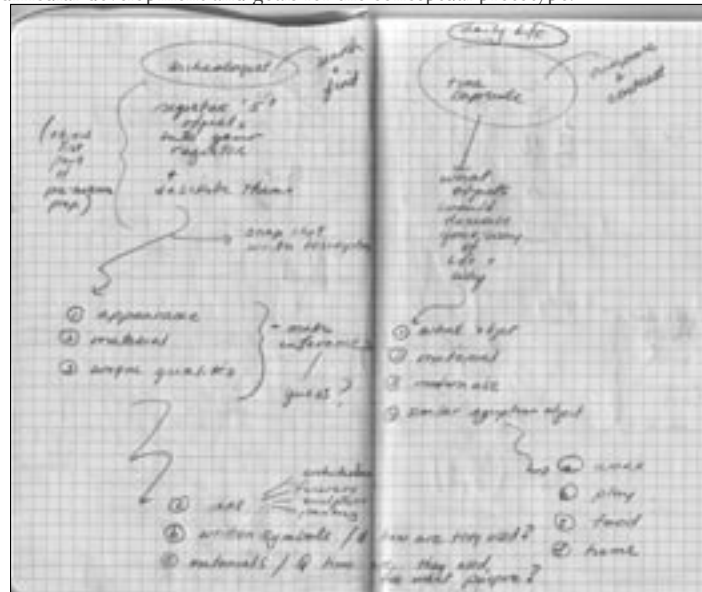 archeologist
find
register "5"
objects
into your
register
+
describe them
snap shot
write description
① appearance
② material
③ unique qualities
make
inferences
guess?
ⓐ art
architecture
sculpture
painting
ⓑ written symbols / Q how are they used?
ⓒ materials / Q how are they used,
for what purpose?
daily life
time
capsule
compare
+
contrast
what
objects
would
describe
your way
of
life +
why
① what object
② material
③ modern use
similar egyptian object
ⓐ work
ⓑ play
ⓒ food
ⓓ home